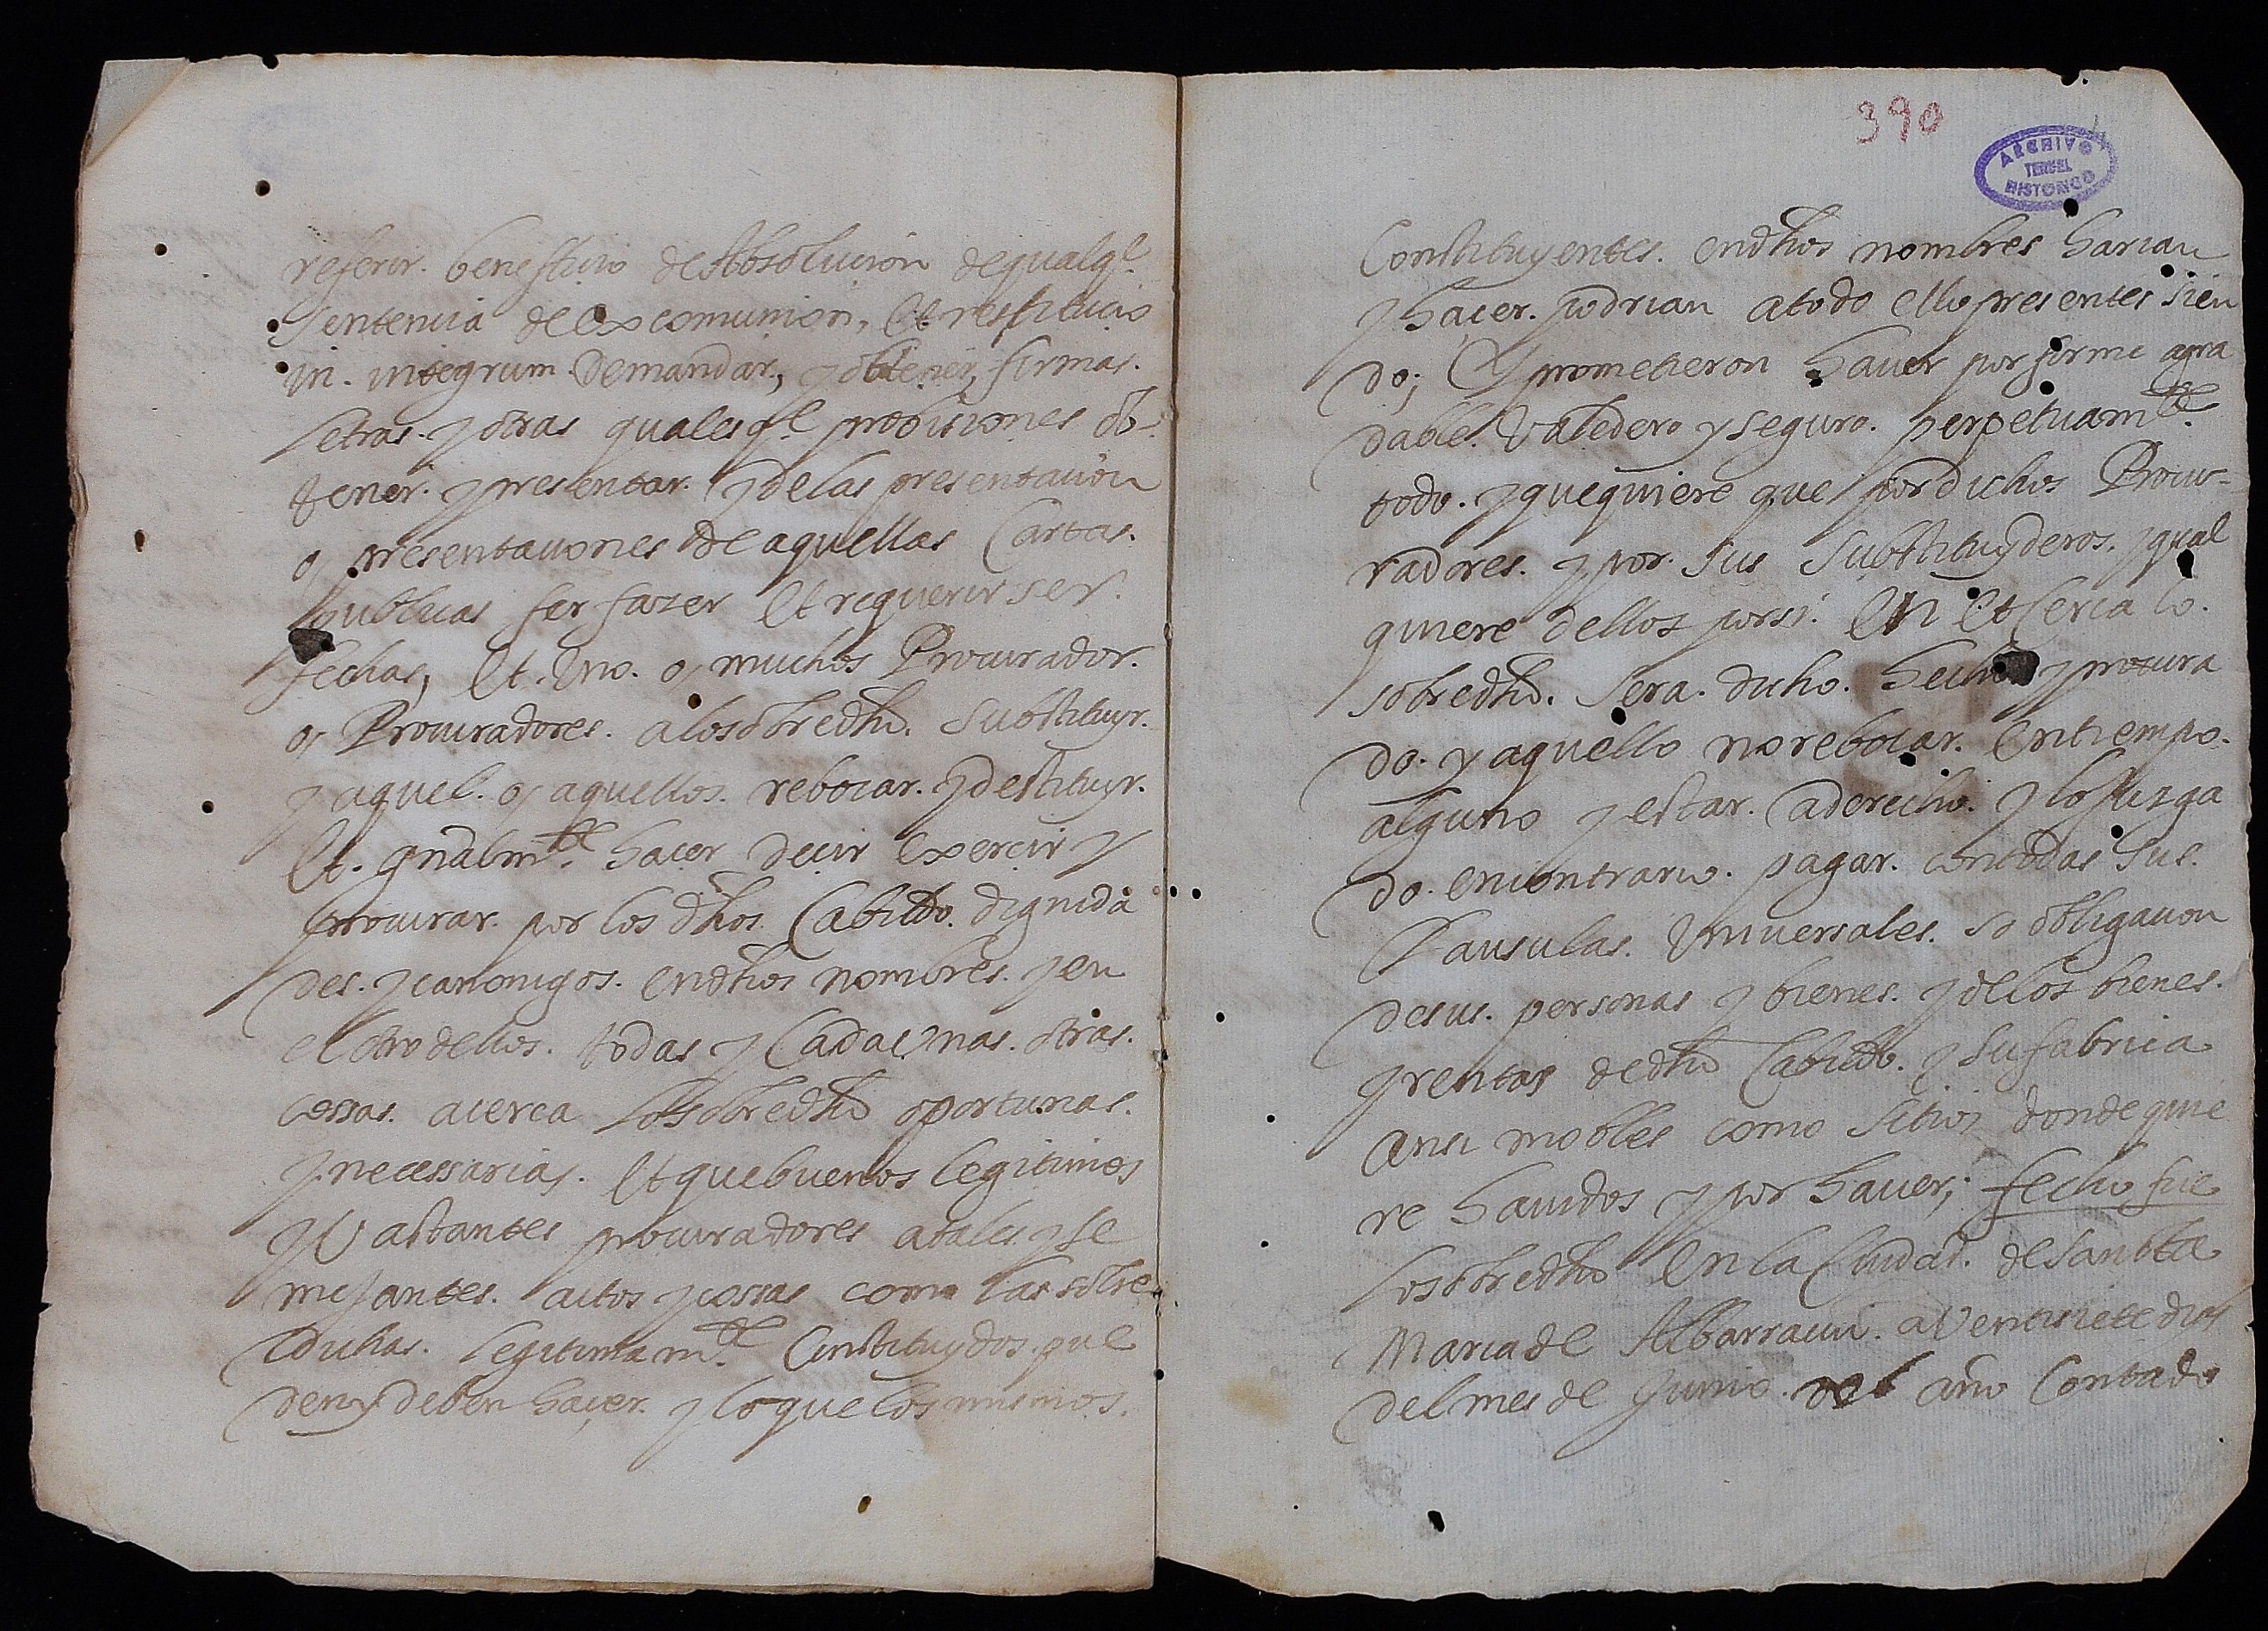 referir. beneficio de Absolucion de qualql.
sentencia de excomunion, et restitucio
in. integrum. demandar, y obtener, firmas.
letras. y otras qualesql. probisiones ob-
tener. y presentar. y de las presentacion
o, presentaciones de aquellas Cartas.
publicas fer fazer et requerir ser.
fechas, et. Vno. o, muchos Procurador.
o, Procuradores. a lo sobredho. substituyr.
y aquel. o, aquellos. rebocar. y destituyr.
et. gnalmte. hacer decir exercir y
procurar. por los dhos. Cabildo. dignida
des. y canonigos. en dhos nombres. y en
el otro dellos. todas y Cada Vnas. otras.
cossas. acerca lo sobredho oportunas.
y necessarias. et que buenos legitimos
y Vastantes procuradores a tales y se
mejantes. actos y cossas como las sobre
dichas. legitimamte. Constituydos. pue
den y deben haçer. y lo que los mismos.
390
ARCHIVO
TERUEL
HISTORICO
Constituyentes. en dhos nombres harian
y haçer. podrian a todo ello presentes sien
do; Y prometieron haver por firme agra
dable. Valedero y seguro. perpetuamte.
todo. y quequiere que por dichos Procu-
radores. y por. sus substituyderos. y qual
quiere dellos por si. en et cerca lo.
sobredho. sera. dicho. hecho y procura
do. y aquello no rebocar. en tiempo.
alguno y estar. a derecho. y lo juzga
do. en contrario. pagar. con todas sus.
Clausulas. Vniversales. so obligacion
de sus. personas y bienes. y de los bienes.
y rentas de dho Cabildo. y su fabrica
ansi mobles como sitios donde quie
re havidos y por haver; fecho fue
lo sobredho en la Ciudad. de Sancta
Maria de Albarracin. a Ventisiete dias
del mes de Junio. del año Contado